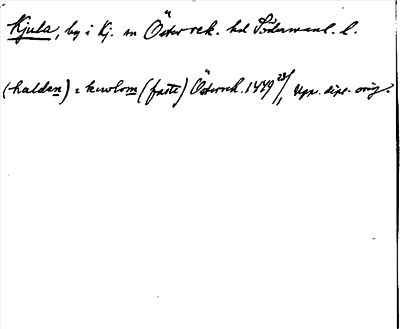 Kjula, by i Kj. sn Österrek. hd Södermanl. l.
(halden) i kiwlom (faste) Österrek. 1449 28/1 Upps. dipl. orig.